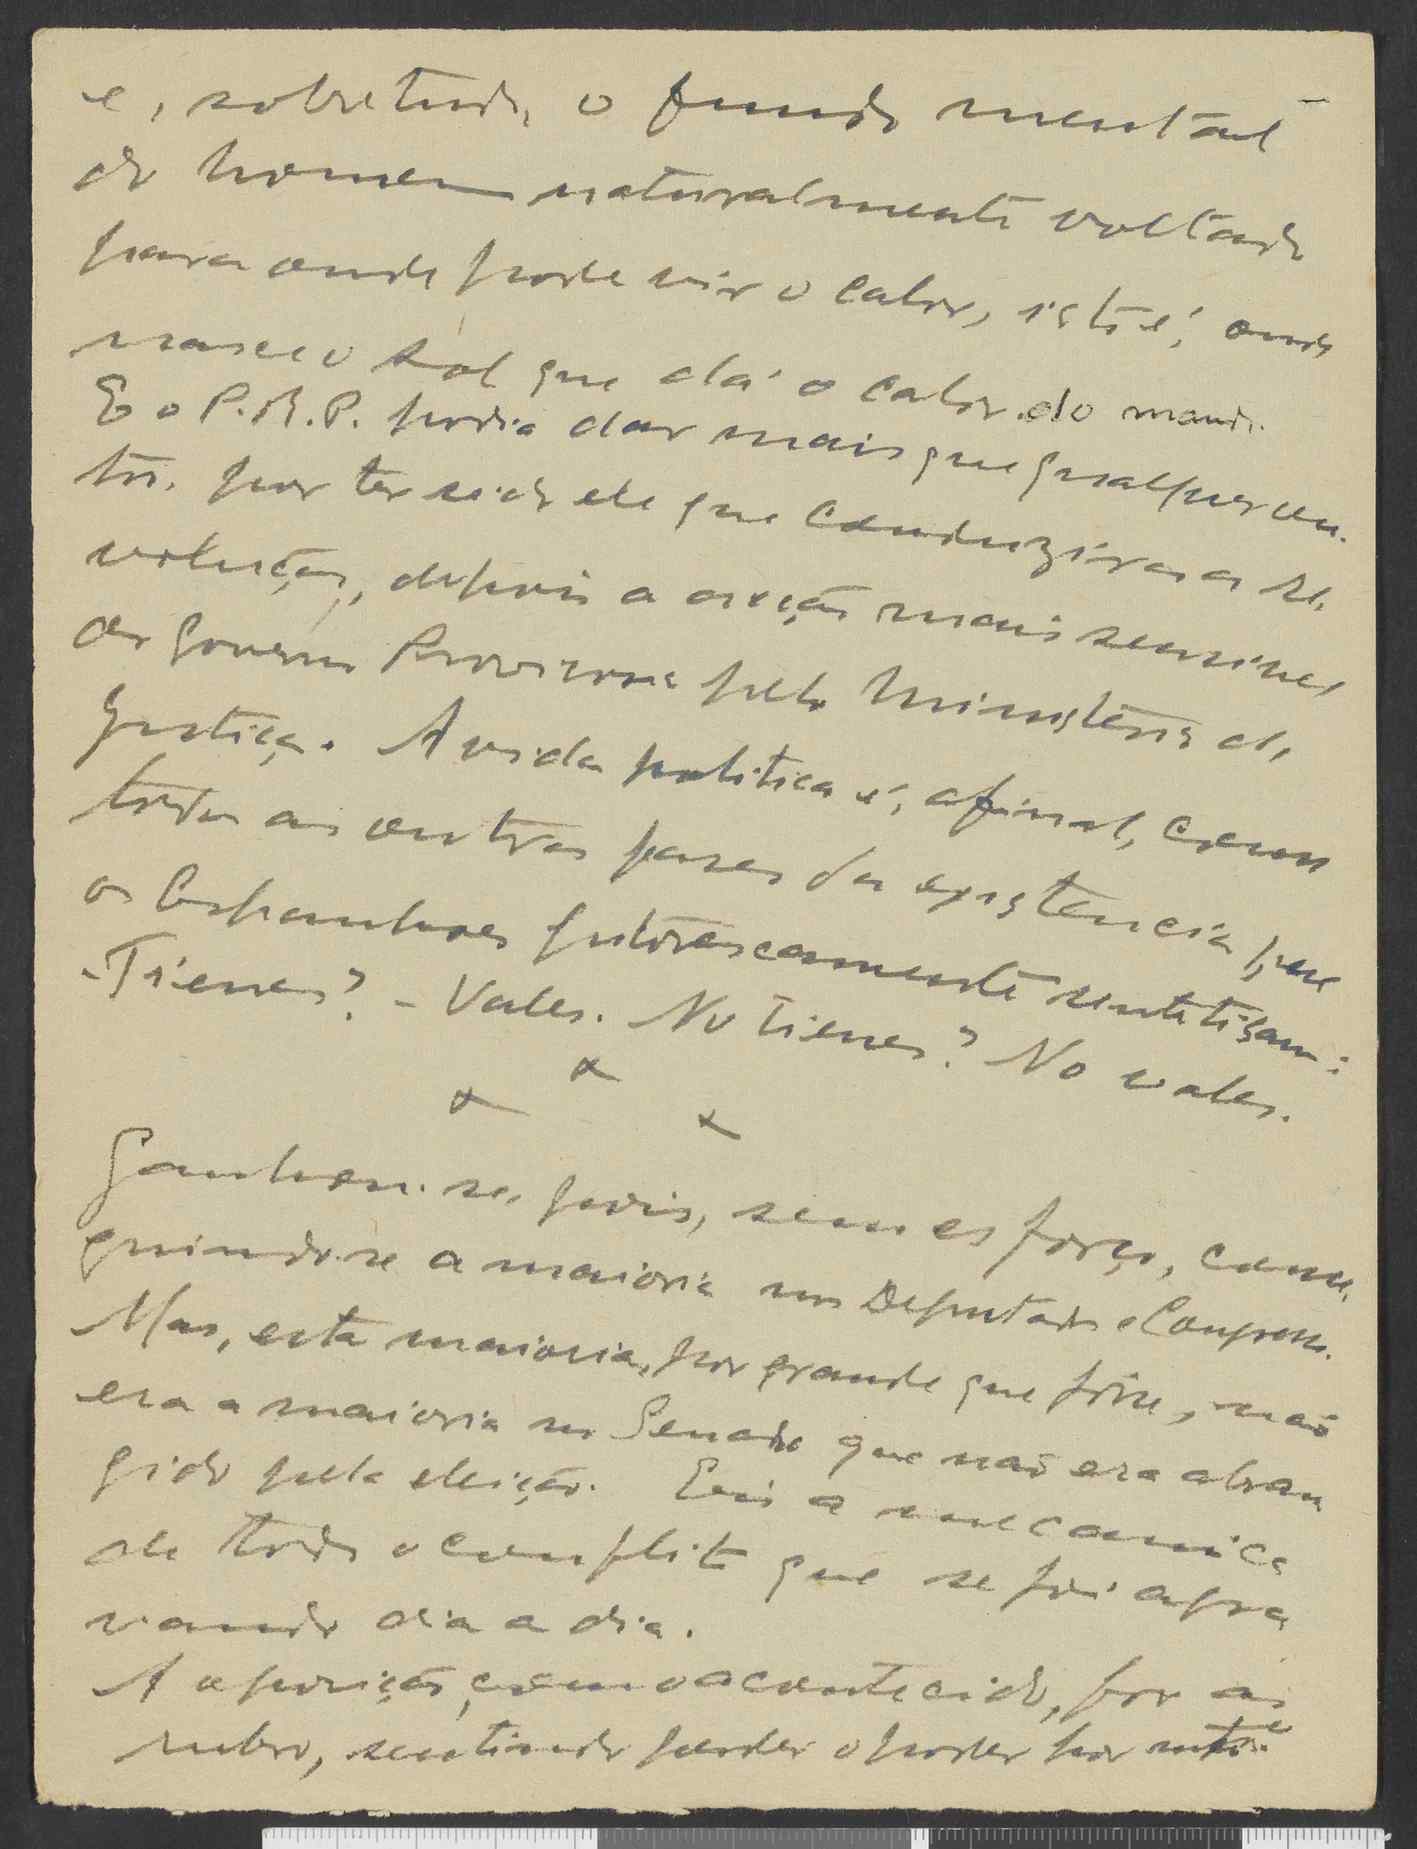 e, sobretudo, o fundo mental
do homem naturalmente voltado
para onde pode vir o calor, isto é, onde
nasce o sol que dá o calor do mando.
E o P.R.P. podia dar mais que qualquer ou-
tro, por ter sido ele que conduzira a re-
volução, depois a acção mais sensivel
do Governo Provisorio pelo Ministério da
Justiça. A vida politica é, afinal, como
todas as outras fases da existencia que
os Espanhoes pitorescamente sintetisam:
- Tienes? - Vales. No tienes? No vales.
x x x
Ganhou-se, pois, sem esforço, conse-
guindo-se a maioria nos Deputados e Congresso.
Mas, esta maioria, por grande que fosse, não
era a maioria no Senado que não era abran
gido pela eleição. Eis a mecanica
de todo o conflito que se foi agra
vando dia a dia.
A oposição, como acontecido, foi ao
rubro, sentindo perder o poder por